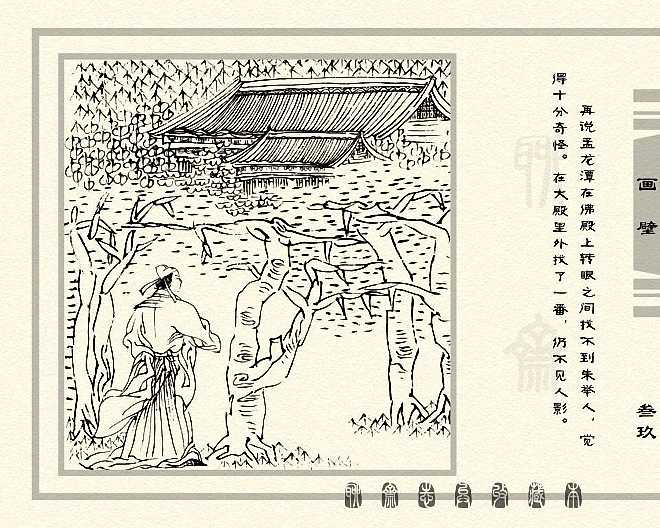 再说孟龙潭在佛殿上转眼之间找不到朱举人，觉
得十分奇怪。在大殿里外找了一番，仍不见人影。
画壁
叁玖
聊斋志异收藏本